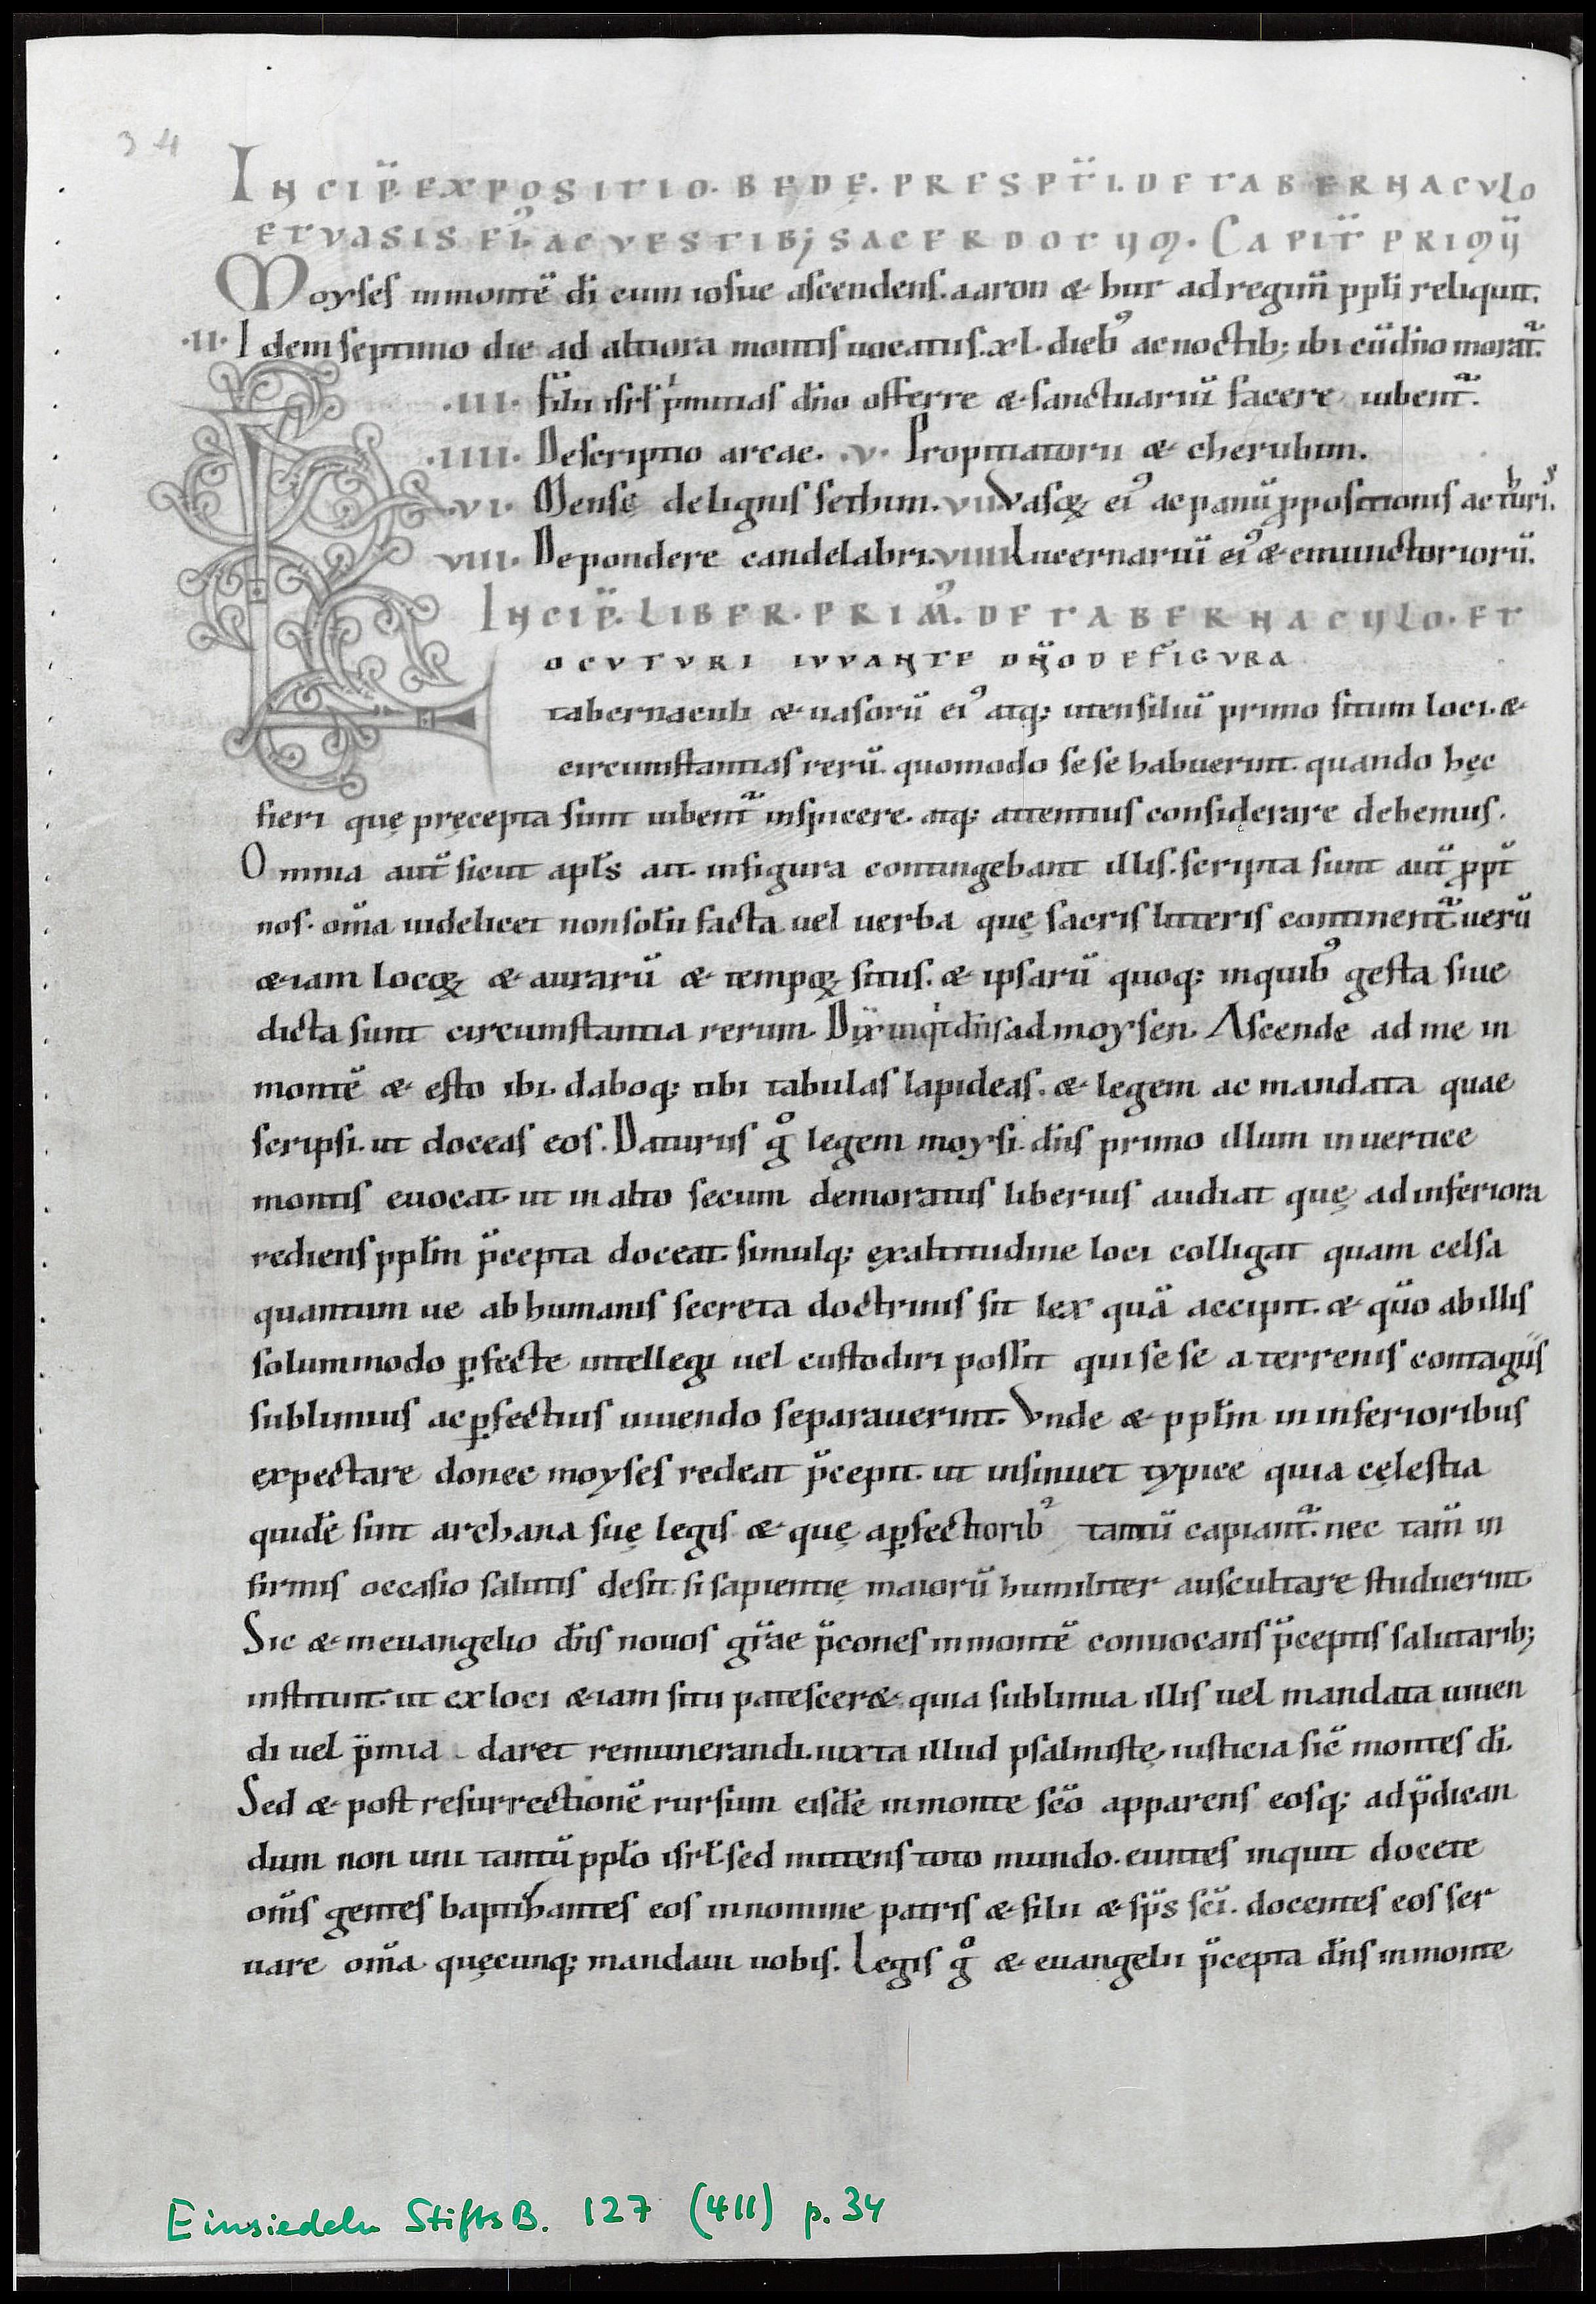 34
INCIP̄. EXPOSITIO. BEDĘ. PRESPT̄I. DE TABERNACVLO
ET VASIS EI᾽. AC VESTIB; SACERDOTUM. CAPIT̄ PRIMŪ
Moyses inmontē dī cum iosue ascendens. aaron & hur ad regim̄ ppl̄i reliquit.
.II. Idem septimo die ad altiora montis uocatus. xl. dieb᾽ ac noctib; ibi cū dn̄o morat᷑.
.III. Filii isrl̄ pͥmitias dn̄o offerre & sanctuariū facere iubent᷑.
.IIII. Descriptio arcae. .V. Propitiatorii & cherubim.
.VI. Mensę de lignis sethim. VII Vasoꝝ ei᾽ ac panū ꝓpositionis ac turiͥs.
VIII. De pondere candelabri. VIIII Lucernariū ei᾽ & emunctoriorū.
INCIP̄. LIBER. PRIM᾽. DE TABERNACULO. ET
LOCVTVRI IVVANTE DN̄O DE FIGVRA
tabernaculi & uasorū ei᾽ atq; utensiliū primo situm loci. &
circumstantias rerū. quomodo sese habuerint. quando hęc
fieri quę pręcepta sunt iubent᷑ inspicere. atq; attentius considerare debemus.
Omnia aut̄ sicut apl̄s ait. in figura contingebant illis. scripta sunt aut̄ ꝓpt̄
nos. om̄a uidelicet non solū facta uel uerba quę sacris litteris continent᷑ uerū
&iam locoꝝ & aurarū & tempoꝝ situs. & ipsarū quoq; in quib᾽ gesta siue
dicta sunt circumstantia rerum. Dix̄ inqͥd dn̄s ad moysen. Ascende ad me in
montē & esto ibi. daboq; tibi tabulas lapideas. & legem ac mandata quae
scripsi. ut doceas eos. Daturus gͦ legem moysi. dn̄s primo illum in uertice
montis euocat. ut in alto secum demoratus liberius audiat quę ad inferiora
rediens ppl̄m p̄cepta doceat. simulq; ex altitudine loci colligat quam celsa
quantum ue ab humanis secreta doctrinis sit lex quā accipit. & quō ab illis
solummodo ꝑfecte intellegi uel custodiri possit qui sese a terrenis contagiis
sublimius ac ꝑfectius uiuendo separauerint. Vnde & ppl̄m in inferioribus
expectare donec moyses redeat p̄cepit. ut insinuet typice quia cęlestia
quidē sint archana suę legis & quę a ꝑfectiorib᾽ tantū capiant᷑. nec tam̄ in
firmis occasio salutis desit. si sapientię maiorū humiliter auscultare studuerint.
Sic & in euangelio dn̄s nouos gr̄ae p̄cones in montē conuocans p̄ceptis salutarib;
instituit. ut ex loci &iam situ patescer& quia sublimia illis uel mandata uiuen
di uel p̄mia daret remunerandi. iuxta illud psalmistę. iusticia sic̄ montes dī.
Sed & post resurrectionē rursum eisdē in monte sc̄o apparens eosq; ad p̄dican
dum non uni tantū ppl̄o isrl̄. sed mittens toto mundo. euntes inquit docete
om̄s gentes baptizantes eos in nomine patris & filii & sp̄s sc̄i. docentes eos ser
uare om̄a quęcunq; mandaui uobis. Legis gͦ & euangelii p̄cepta dn̄s in monte
Einsiedeln StiftsB. 127 (411) p. 34